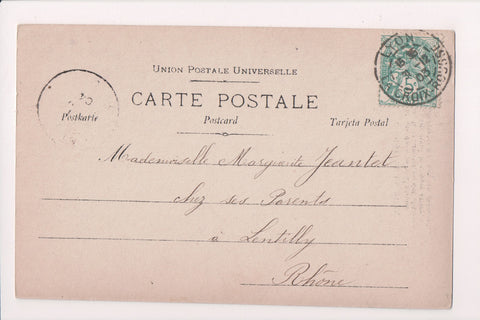 UNION POSTALE UNIVERSELLE
CARTE POSTALE
Postkarte Postcard Tarjeta Postal
LYON
CROIX-ROUSSE
Mademoiselle Marguerite Jeantet
chez ses Parents
à Lentilly
Rhône